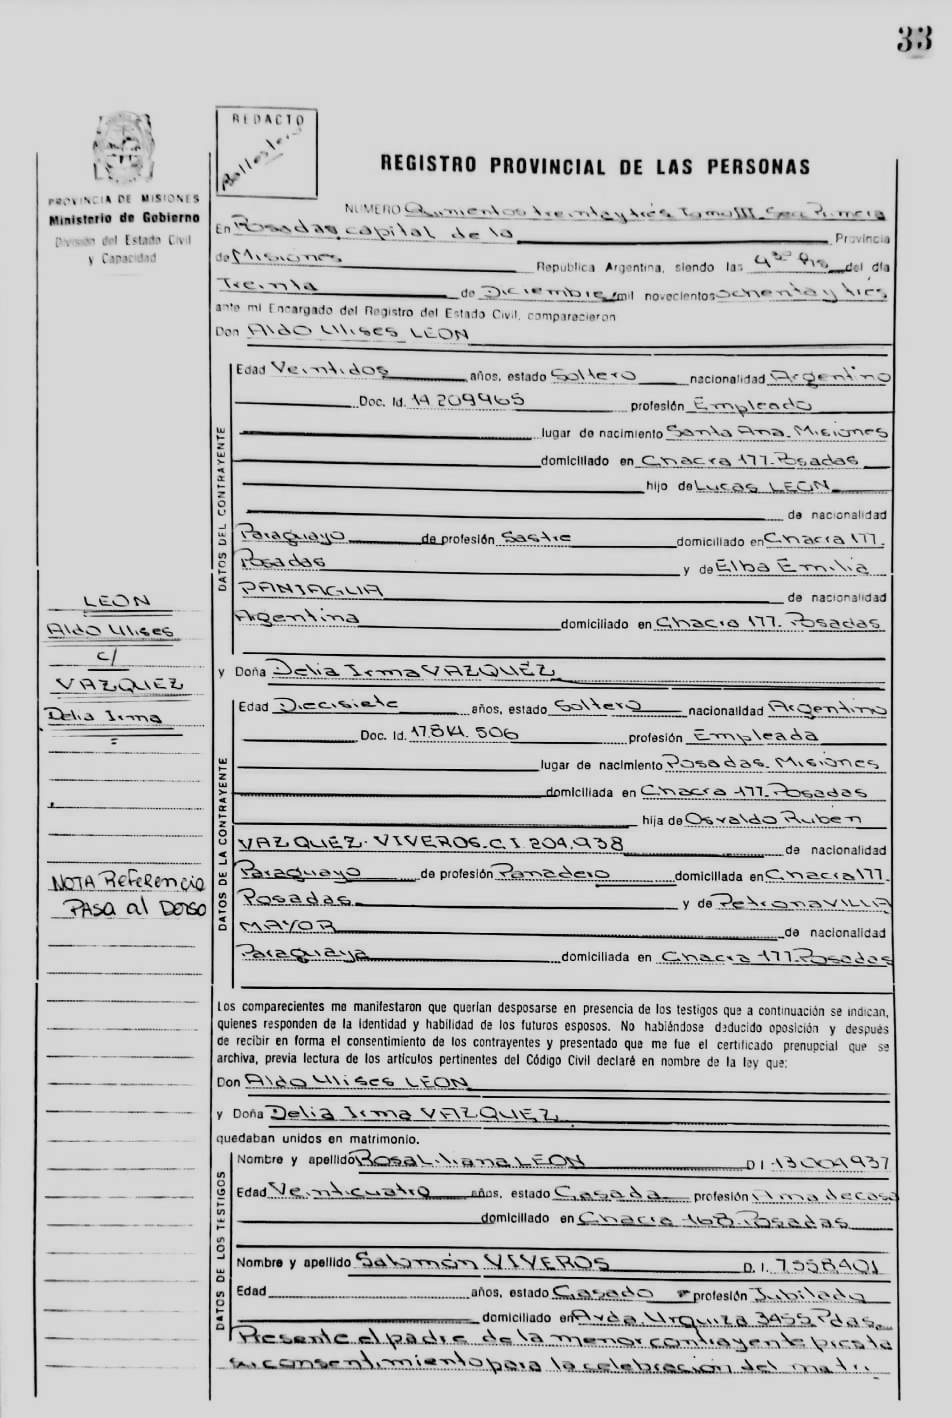 33
REDACTO
Ballestero
PROVINCIA DE MISIONES
Ministerio de Gobierno
División del Estado Civil
y Capacidad
REGISTRO PROVINCIAL DE LAS PERSONAS
NUMERO Quinientos treinta y tres Tomo III Secc Primera
En Posadas, capital de la Provincia
de Misiones República Argentina, siendo las del día
Treinta de Diciembre mil novecientos ochenta y tres
ante mi Encargado del Registro del Estado Civil, comparecieron
Don Aldo Ulises LEON
DATOS DEL CONTRAYENTE
Edad Veintidos años, estado Soltero nacionalidad Argentino
Doc. Id. 14 209465 profesión Empleado
lugar de nacimiento Santa Ana. Misiones
domiciliado en Chacra 177. Posadas
hijo de Lucas LEON
de nacionalidad
Paraguayo de profesión Sastre domiciliado en Chacra 177.
Posadas y de Elba Emilia
PANIAGUA de nacionalidad
Argentina domiciliado en Chacra 177. Posadas
LEON
Aldo Ulises
c/
VAZQUEZ
Delia Irma
y Doña Delia Irma VAZQUEZ
DATOS DE LA CONTRAYENTE
Edad Diecisiete años, estado Soltera nacionalidad Argentina
Doc. Id. 17.814.506 profesión Empleada
lugar de nacimiento Posadas. Misiones
domiciliada en Chacra 177. Posadas
hija de Osvaldo Ruben
VAZQUEZ. VIVEROS. C.I 204.938 de nacionalidad
Paraguayo de profesión Panadero domiciliada en Chacra 177.
Posadas y de Petrona VILLA
MAYOR de nacionalidad
Paraguaya domiciliada en Chacra 177. Posadas
NOTA Referencia
PASA al DORSO
Los comparecientes me manifestaron que querían desposarse en presencia de los testigos que a continuación se indican,
quienes responden de la identidad y habilidad de los futuros esposos. No habiéndose deducido oposición y después
de recibir en forma el consentimiento de los contrayentes y presentado que me fue el certificado prenupcial que se
archiva, previa lectura de los artículos pertinentes del Código Civil declaré en nombre de la ley que:
Don Aldo Ulises LEON
y Doña Delia Irma VAZQUEZ
quedaban unidos en matrimonio.
DATOS DE LOS TESTIGOS
Nombre y apellido Rosa Liliana LEON D I. 13 004937
Edad Veinticuatro años, estado Casada profesión Ama de casa
domiciliado en Chacra 168. Posadas
Nombre y apellido Salomón VIVEROS D. I. 7558401
Edad años, estado Casado profesión Jubilado
domiciliado en Avda. Urquiza 3455 Pdas.
Presente el padre de la menor contrayente presta
su consentimiento para la celebración del matri